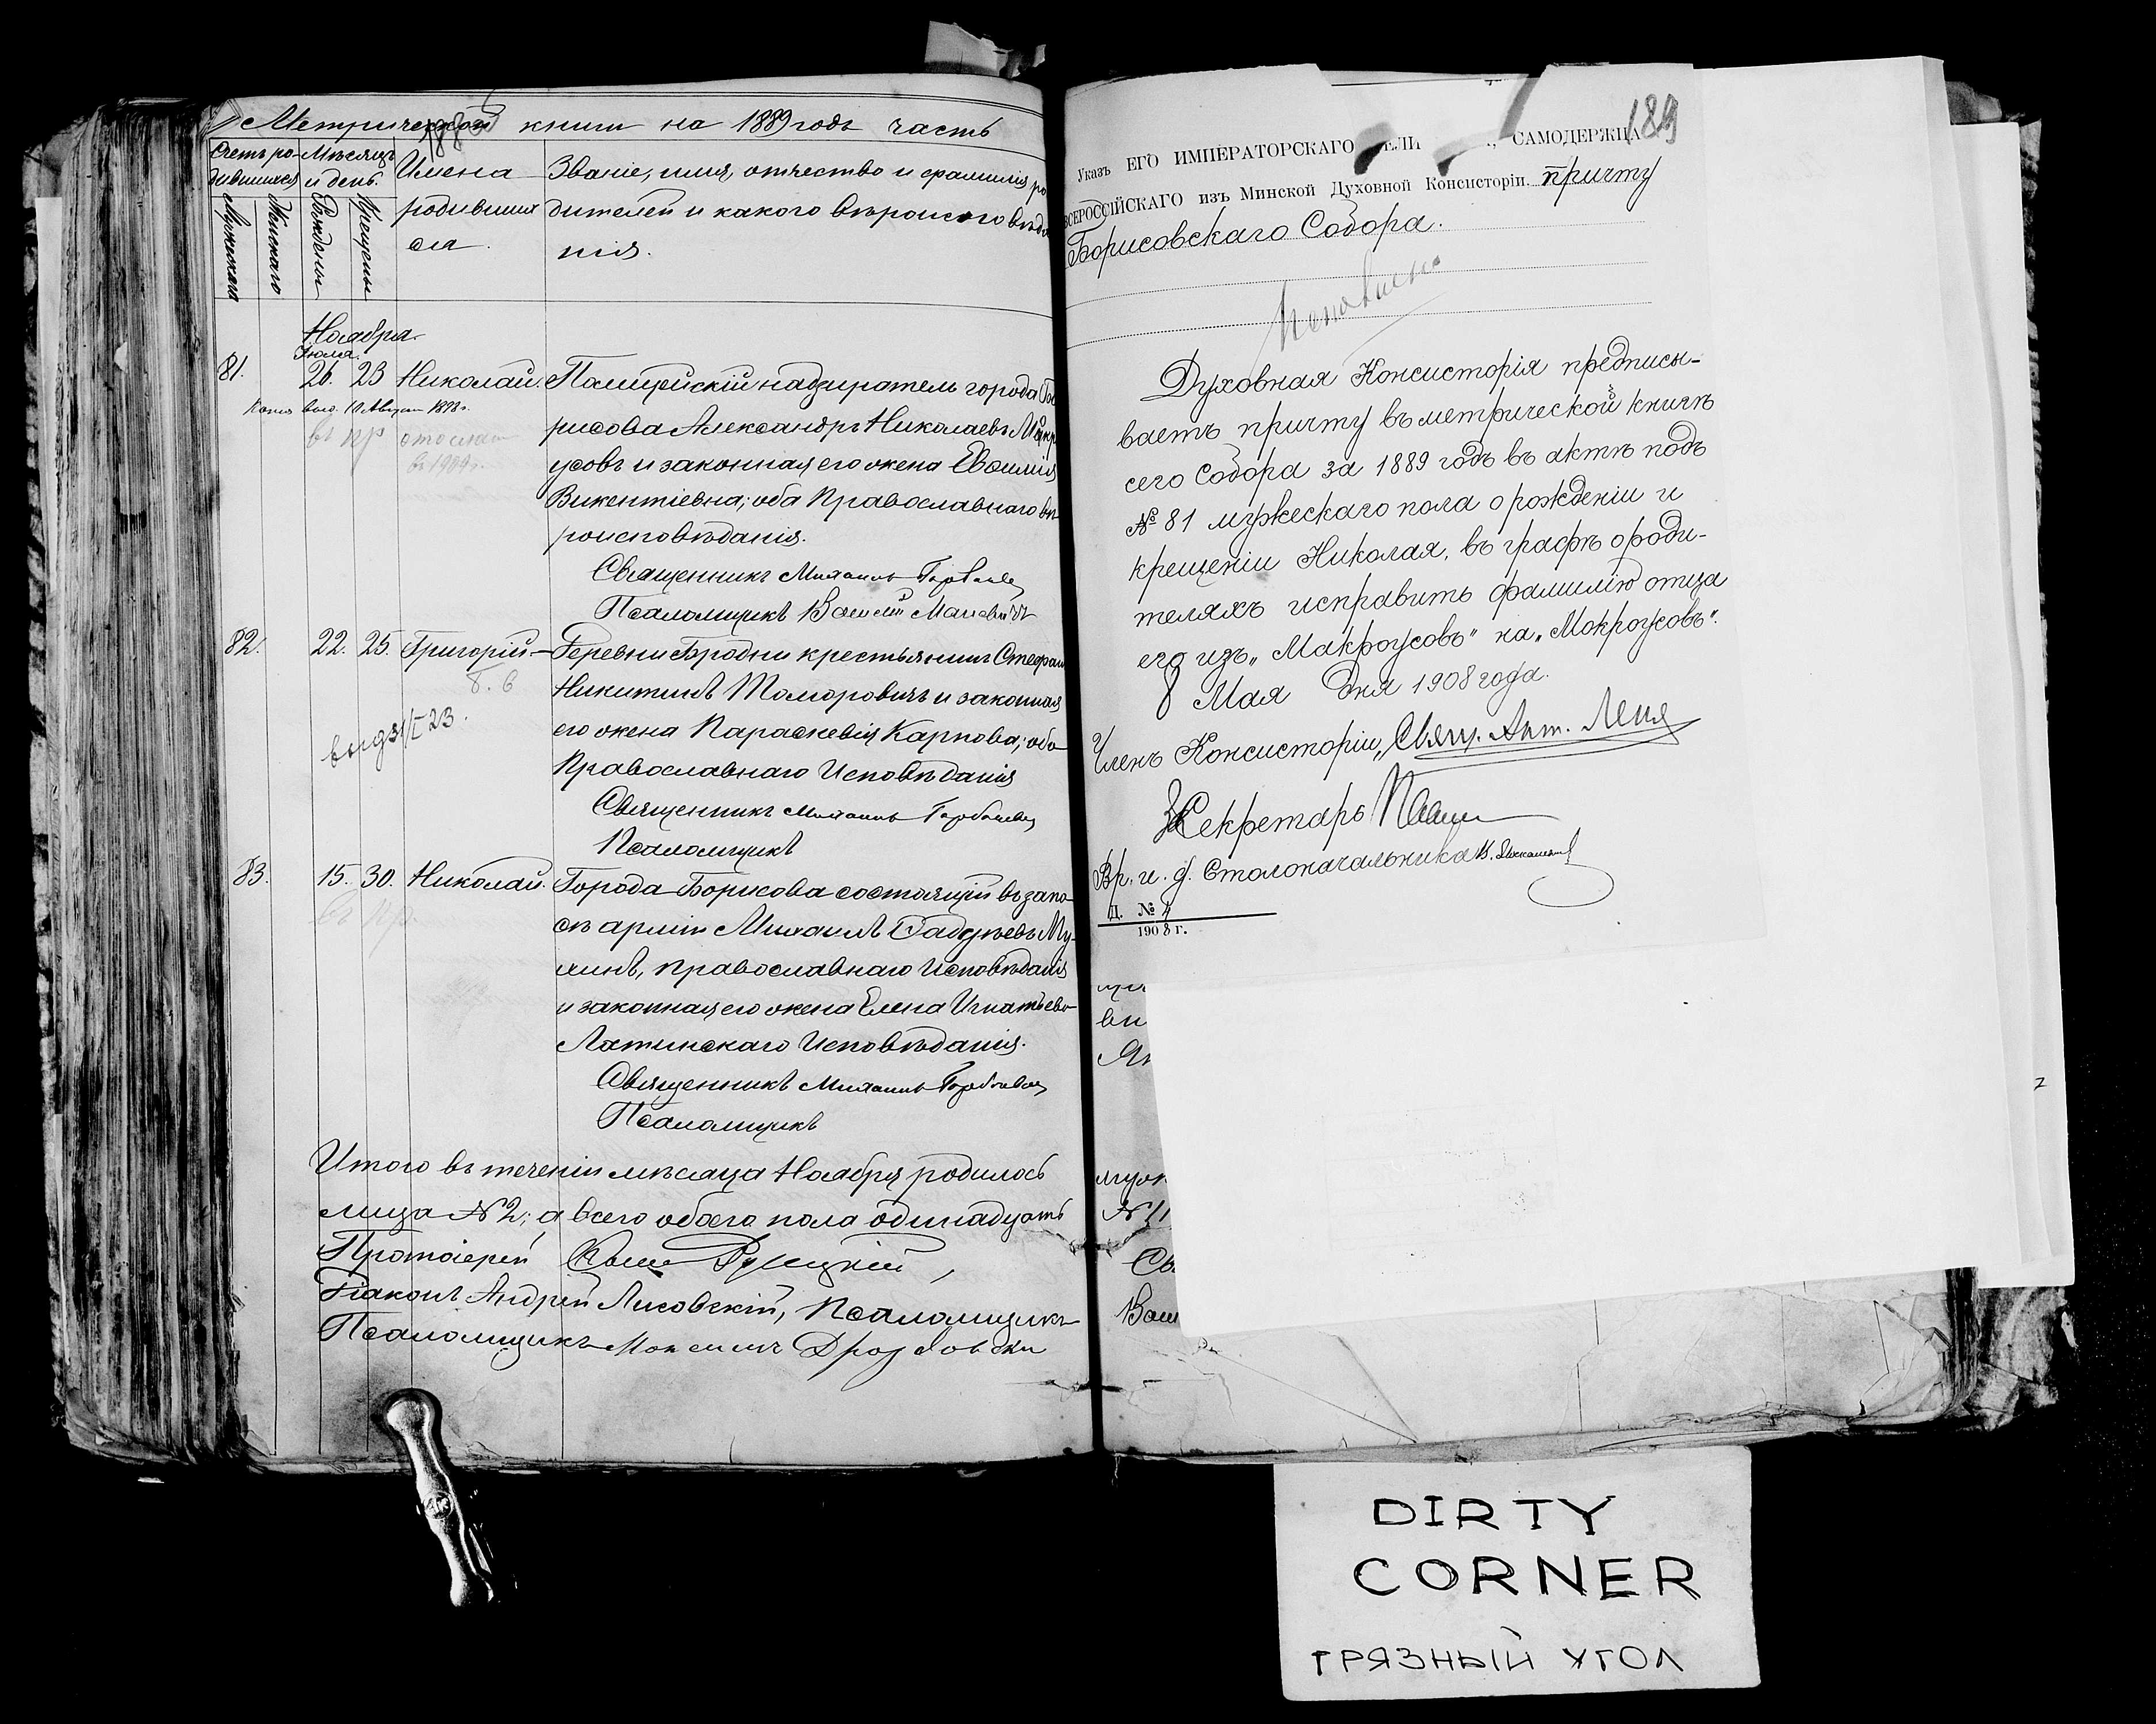 Метрической книги на 1889 годъ часть
Счетъ ро-
дившихся
Мѣсяцъ
и день.
Имена
родивших
ся.
Званіе, имя, отчество и фамилія ро
дителей и какого вѣроисповѣда
нія.
Мужескаго
Женскаго
Рожденія
Крещенія
Ноября.
Іюля.
81. 26. 23 Николай. Полицейскій надзиратель города Бо
Копія выд. 10 Августа 1898 г.
рисова Александръ Николаевъ Мокр
въ пр отослан
въ 1904 г.
усовъ и законная его жена Евлалія
Викентіевна; оба Православнаго вѣ
роисповѣданія.
Священникъ Михаилъ Горбачевъ
Псаломщикъ Василій
82. 22. 25. Григорій Деревни Бродни крестьянинъ Стефан
Никитинъ Томоровичъ и законная
выд 31/I 23.
его жена Параскевія Карпова; оба
Православнаго Исповѣданія
Священникъ Михаилъ Горбачевъ
Псаломщикъ
83. 15. 30. Николай. Города Борисова состоящій въ запа-
въ пр.
сѣ арміи Михаилъ Му-
хинъ, православнаго Исповѣданія
и законная его жена Елена Игнатьева
Латинскаго Исповѣданія.
Священникъ Михаилъ Горбачевъ
Псаломщикъ
Итого въ теченіи мѣсяца Ноября родилось
лица № 2; а всего обоего пола одинадцать
Протоіерей
Діаконъ Андрей Лисовскій, Псаломщикъ
Псаломщикъ
189
Указъ ЕГО ИМПЕРАТОРСКАГО ВЕЛИ САМОДЕРЖЦА
ВСЕРОССІЙСКАГО изъ Минской Духовной Консисторіи. причту
Борисовскаго Собора.
Духовная Консисторія предписы-
ваетъ причту въ метрической книгѣ
сего Собора за 1889 годъ въ актѣ подъ
№ 81 мужескаго пола о рожденіи и
крещеніи Николая, въ графѣ о роди-
теляхъ исправить фамилію отца
его изъ „Макроусовъ" на „Мокроусовъ".
8 Мая дня 1908 года.
Членъ Консисторіи, Свящ. Ант.
Секретарь
Вр. и. д. Столоначальника
Д. № 4
1908 г.
ви
муж
№ 11
Св
Вас
DIRTY
CORNER
ГРЯЗНЫЙ УГОЛ